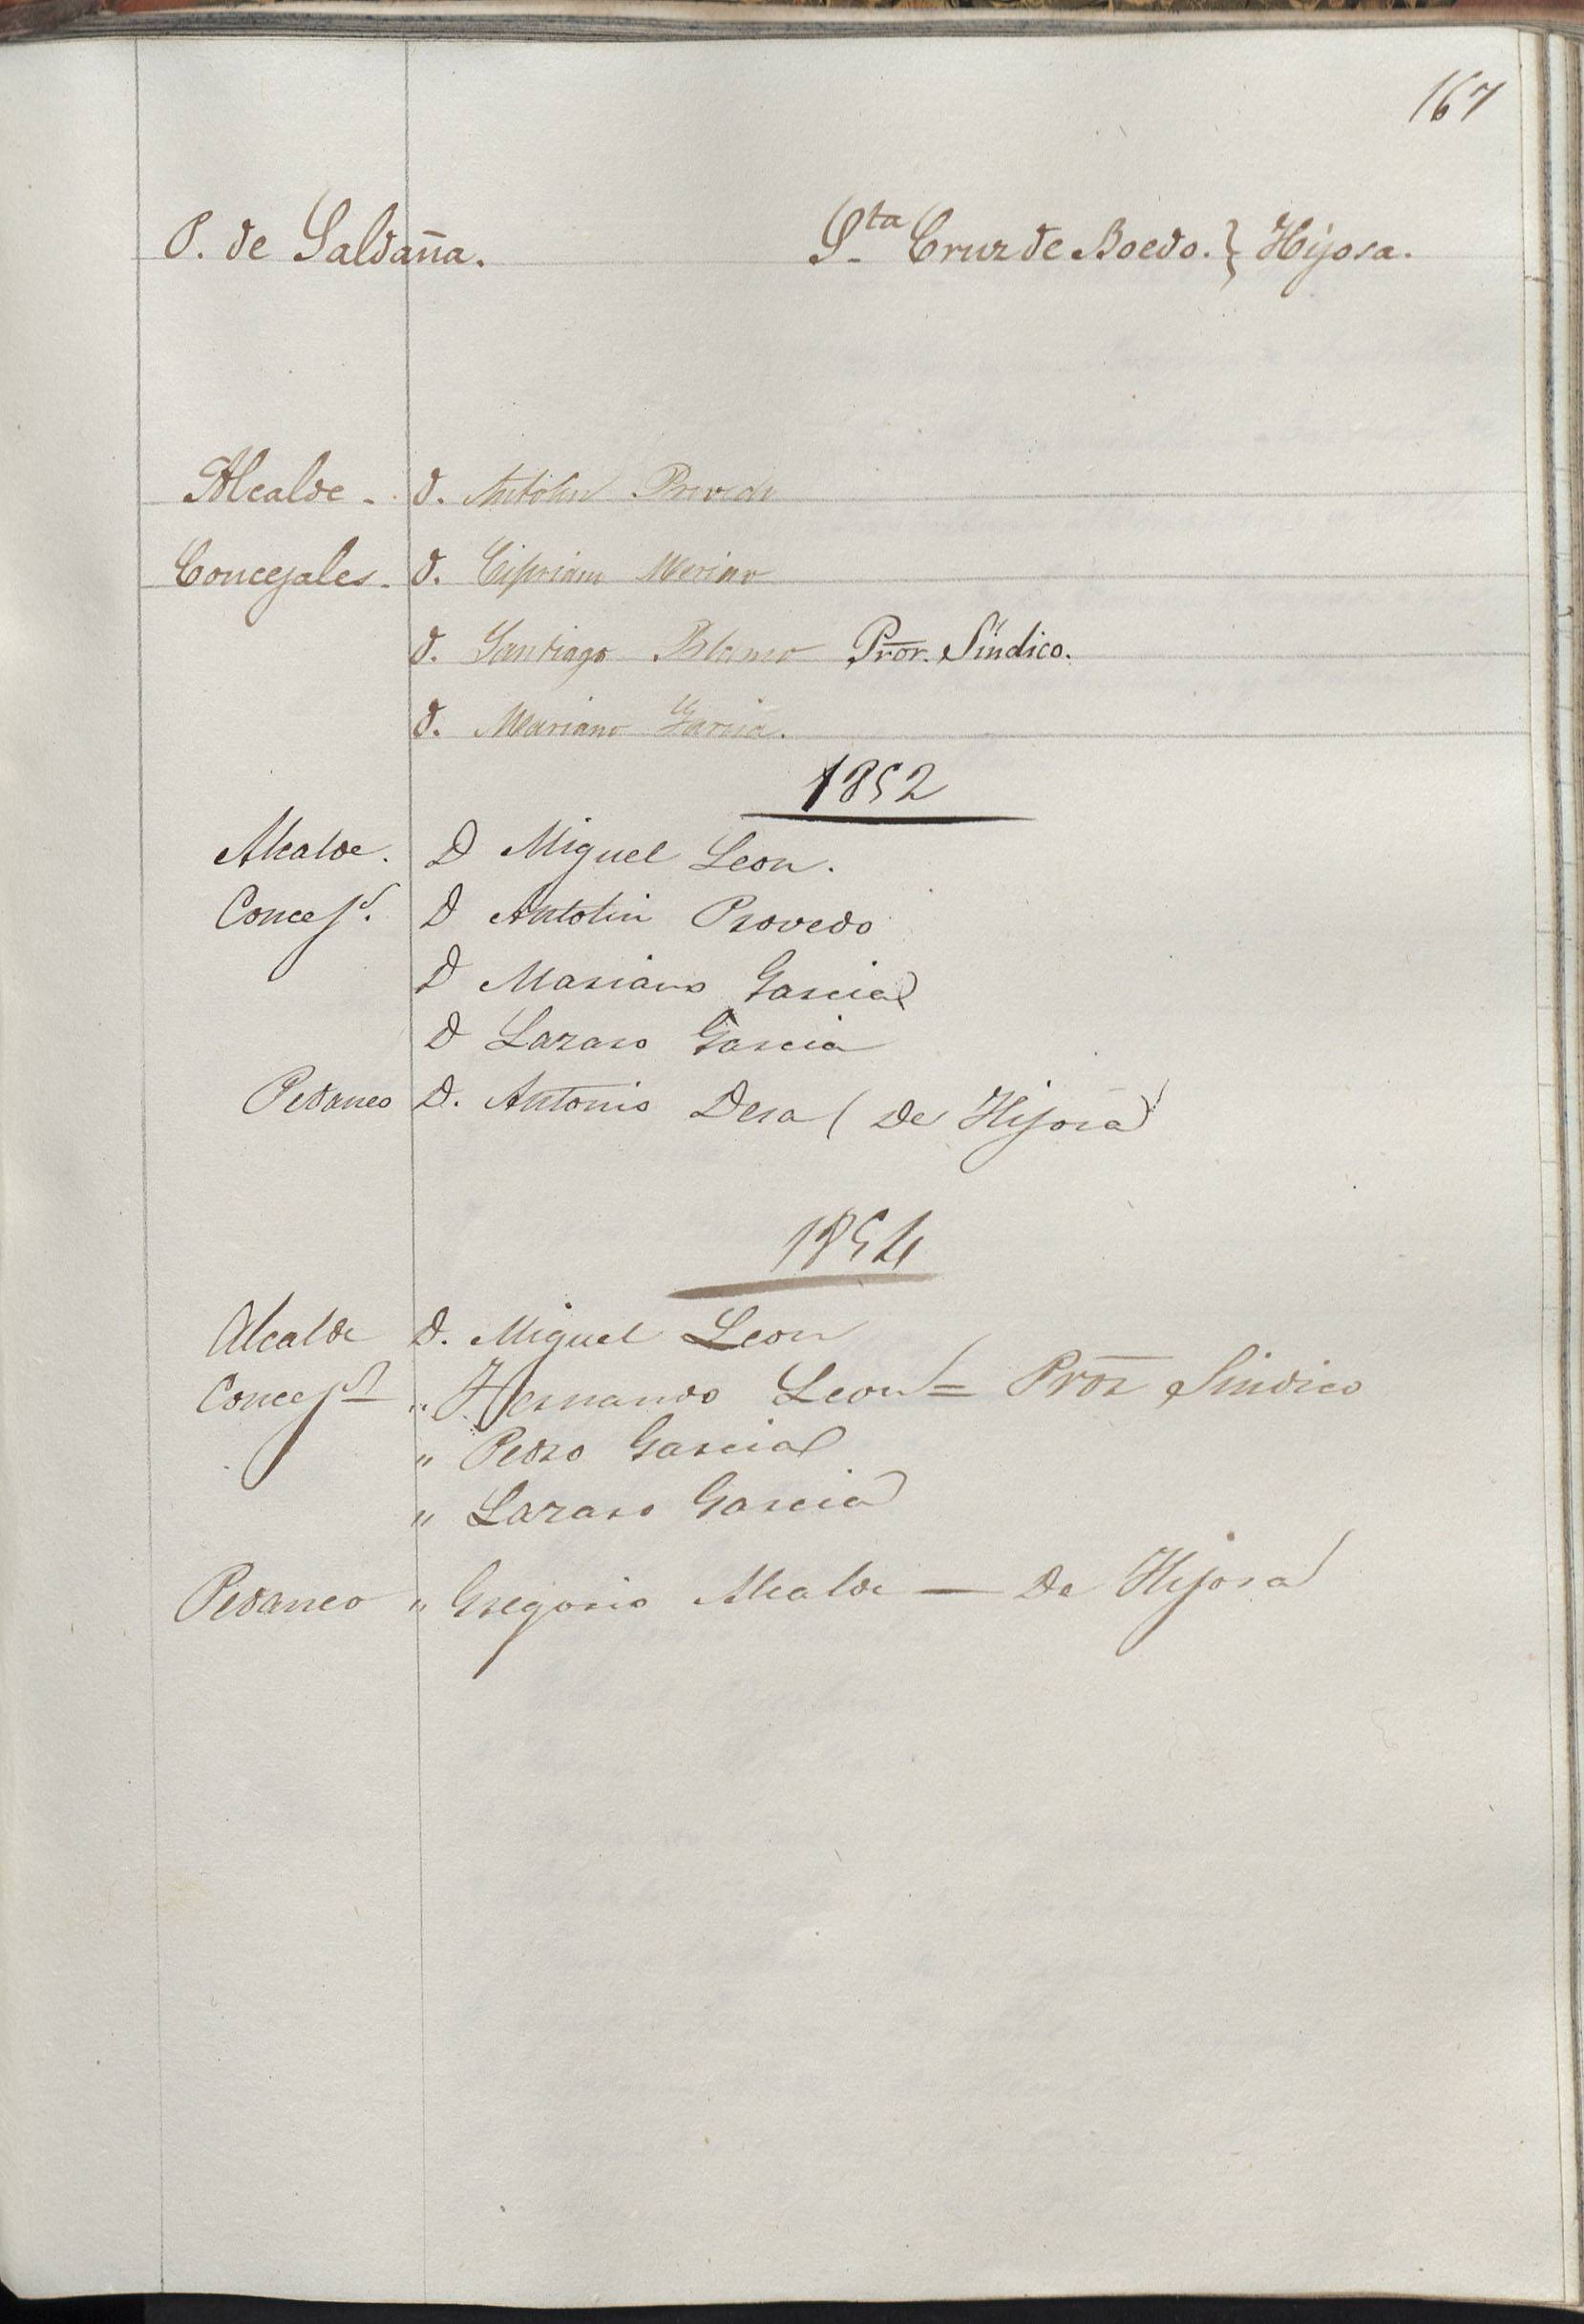 167
P. de Saldaña. Sta Cruz de Boedo. } Hijosa.
Alcalde - D. Antolin Provedo
Concejales - D. Cipriano Merino
D. Santiago Blanco Pror. Síndico.
D. Mariano Garcia.
1852
Alcalde. D Miguel Leon.
Concejs. D Antolin Provedo
D Mariano Garcia
D Lazaro Garcia
Pedaneo D. Antonio Desa (De Hijosa)
1854
Alcalde D. Miguel Leon
Concejs " Hernando Leon = Pror Sindico
" Pedro Garcia
" Lazaro Garcia
Pedaneo " Gregorio Alcalde — De Hijosa